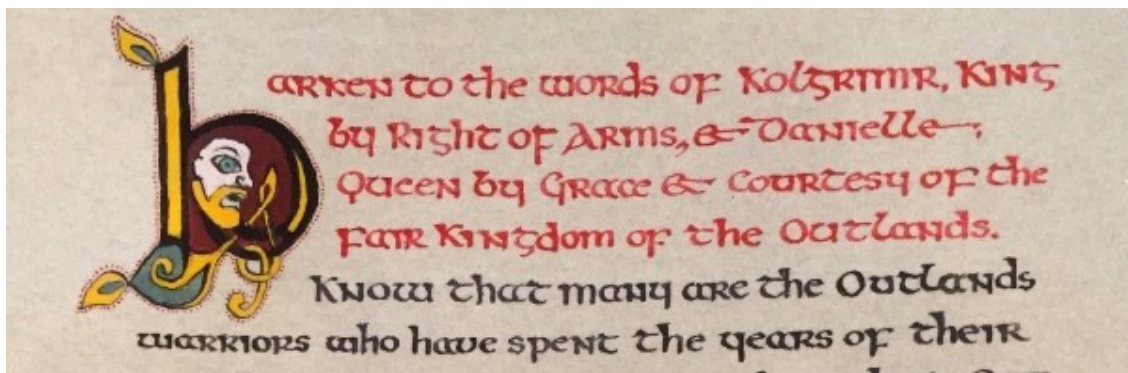 harken to the words of Kolgrimr, King
by Right of Arms, & Danielle;
Queen by Grace & Courtesy of the
Fair Kingdom of the Outlands.
Know that many are the Outlands
warriors who have spent the years of their